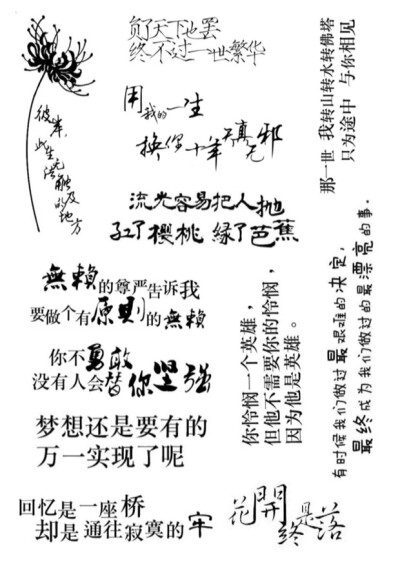 负了天下也罢
终不过一世繁华
用我的一生
换你十年天真无邪
那一世 我转山转水转佛塔
只为途中 与你相见
彼岸，
此生无法触及的地方
流光容易把人抛
红了樱桃 绿了芭蕉
無賴的尊严告诉我
要做个有原則的無賴
你怜悯一个英雄，
但他不需要你的怜悯，
因为他是英雄。
有时候我们做过最艰难的决定，
最终成为我们做过的最漂亮的事。
你不勇敢
没有人会替你坚强
梦想还是要有的
万一实现了呢
回忆是一座桥
却是通往寂寞的牢
花開
终是落